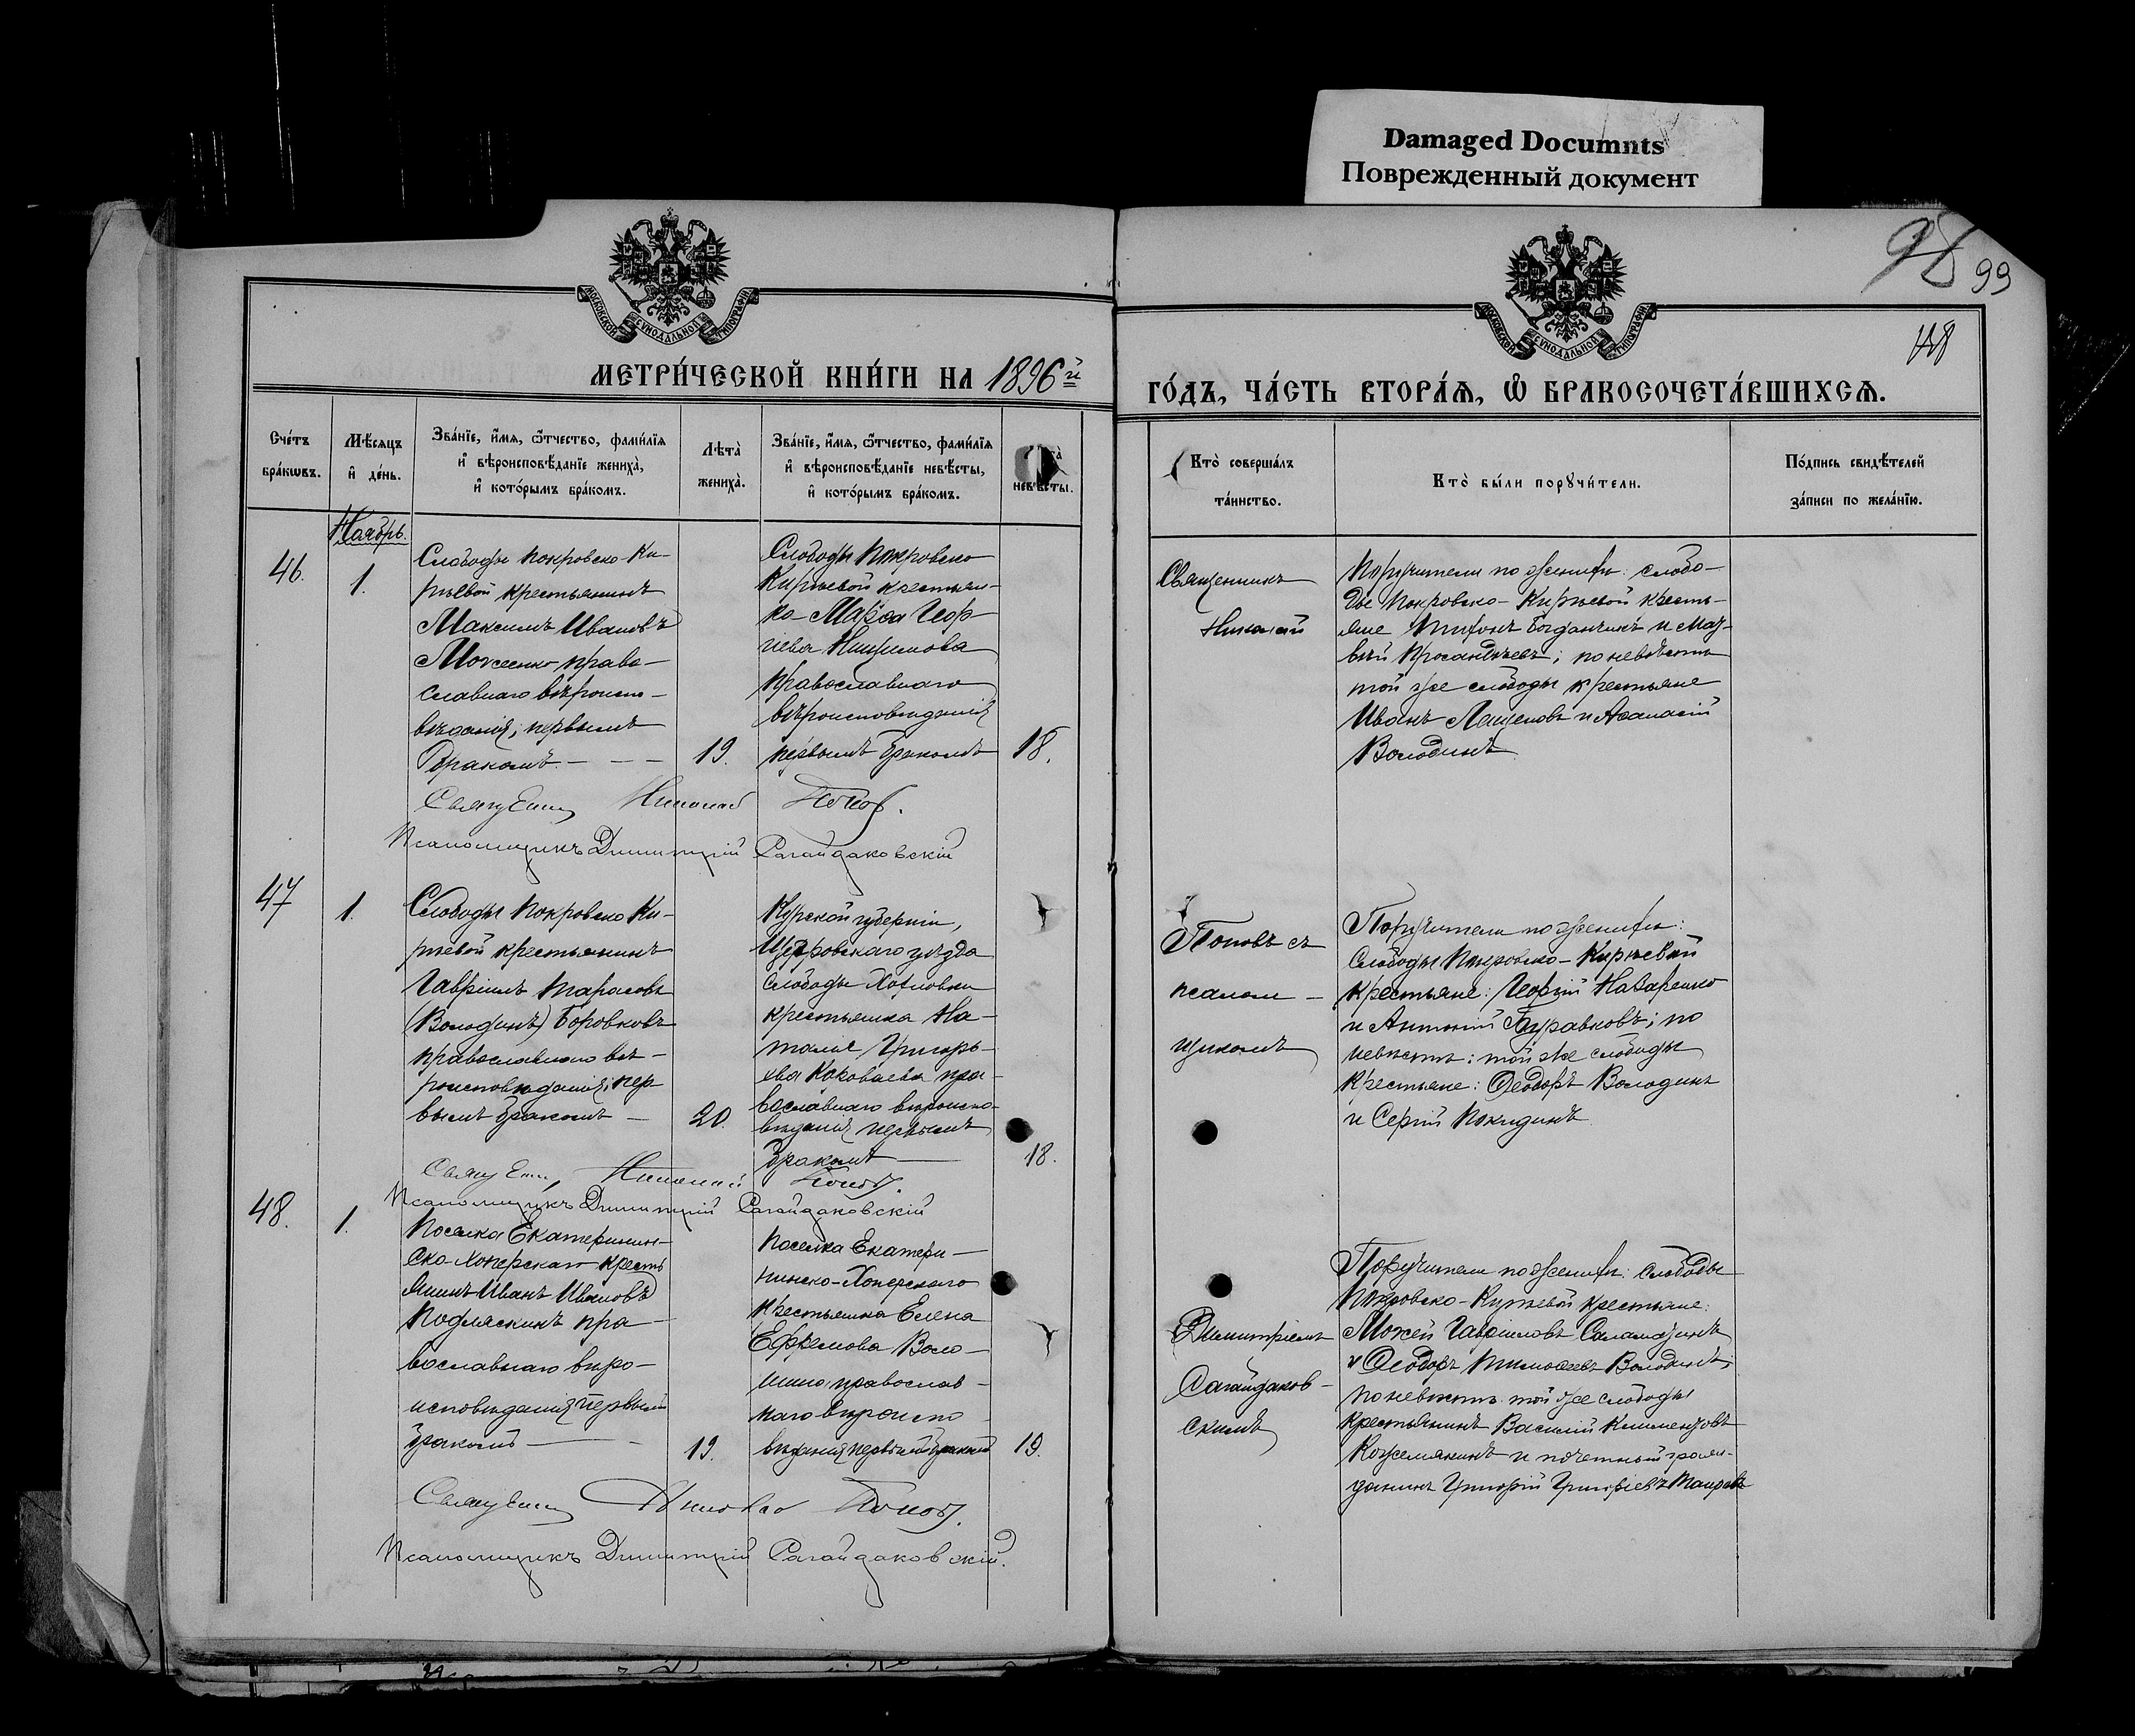 Damaged Documnts
Поврежденный документ
98 99
МОСКОВСКОЙ СѴНОДАЛЬНОЙ ТИПОГРАФІИ
МОСКОВСКОЙ СѴНОДАЛЬНОЙ ТИПОГРАФІИ
МЕТРИ́ЧЕСКОЙ КНИ́ГИ НА 1896й
ГО́ДЪ, ЧА́СТЬ ВТОРА́Я, Ѡ БРАКОСОЧЕТА́ВШИХСѦ.
Сче́тъ бра́кѡвъ.
Мѣ́сяцъ и де́нь.
Зва́нїе, и́мя, ѻ҆́тчество, фами́лїя
и вѣроисповѣ́данїе жениха̀,
и кото́рымъ бра́комъ.
Лѣта̀ жениха̀.
Зва́нїе, и́мя, ѻ҆́тчество, фами́лїя
и вѣроисповѣ́данїе невѣ́сты,
и кото́рымъ бра́комъ.
невѣ́сты.
Кто̀ соверша́лъ
та́инство.
Кто̀ бы́ли порꙋчи́тели.
По́дпись свидѣ́телей
за́писи по жела́нїю.
Ноябрь.
46.
1.
Слободы Покровско Ки-
рѣевой крестьянинъ
Максимъ Ивановъ
право-
славнаго вѣроиспо-
вѣданія; первымъ
бракомъ. - - -
19.
Слободы Покровско
Кирѣевой крестьян-
ка Марѳа Геор-
гіева
православнаго
вѣроисповѣданія
первымъ бракомъ
18.
Священникъ
Николай
Поручители по женихѣ: слобо-
ды Покровско-Кирѣевой кресть-
яне Тихонъ Богданчикъ и Мат-
вѣй; по невѣстѣ
той же слободы крестьяне
Иванъ Лященовъ и Аѳанасій
Володинъ
Священ. Николай Попов.
Псаломщикъ Димитрій Сагайдаковскій
47
1.
Слободы Покровско Ки-
рѣевой крестьянинъ
Гавріилъ Тарасовъ
(Володинъ) Боровковъ
православнаго вѣ-
роисповѣданія; пер
вымъ бракомъ -
20.
Курской губерніи,
Щигровскаго уѣзда
слободы
крестьянка На-
талья Григорь-
ева пра-
вославнаго вѣроиспо-
вѣданія первымъ
бракомъ
18.
Поповъ съ
псалом-
щикомъ
Поручители по женихѣ:
слободы Покровско-Кирѣевой
крестьяне: Георгій Назаренко
и Антоній Журавковъ; по
невѣстѣ: той же слободы
крестьяне: Ѳеодоръ Володинъ
и Сергій Покидинъ
Священ. Николай Попов.
Псаломщикъ Димитрій Сагайдаковскій
48.
1.
Поселка Екатеринин-
ско-Хоперскаго кресть
янинъ Иванъ Ивановъ
Подляскинъ пра-
вославнаго вѣро-
исповѣданія первымъ
бракомъ -
19.
Поселка Екатери-
нинско-Хоперскаго
крестьянка Елена
Ефремова Воло-
шина православ-
наго вѣроиспо
вѣданія первымъ бракомъ
19.
Димитріемъ
Сагайдаков-
скимъ
Поручители по женихѣ: слободы
Покровско-Кирѣевой крестьяне:
Мокей Гавріиловъ Саламахинъ
и Ѳеодоръ Тимоѳеевъ Володинъ;
по невѣстѣ: той же слободы
крестьянинъ Василій Климентовъ
Кожемякинъ и почетный граж-
данинъ Григорій Григорьевъ
Священ. Николай Попов.
Псаломщикъ Димитрій Сагайдаковскій.